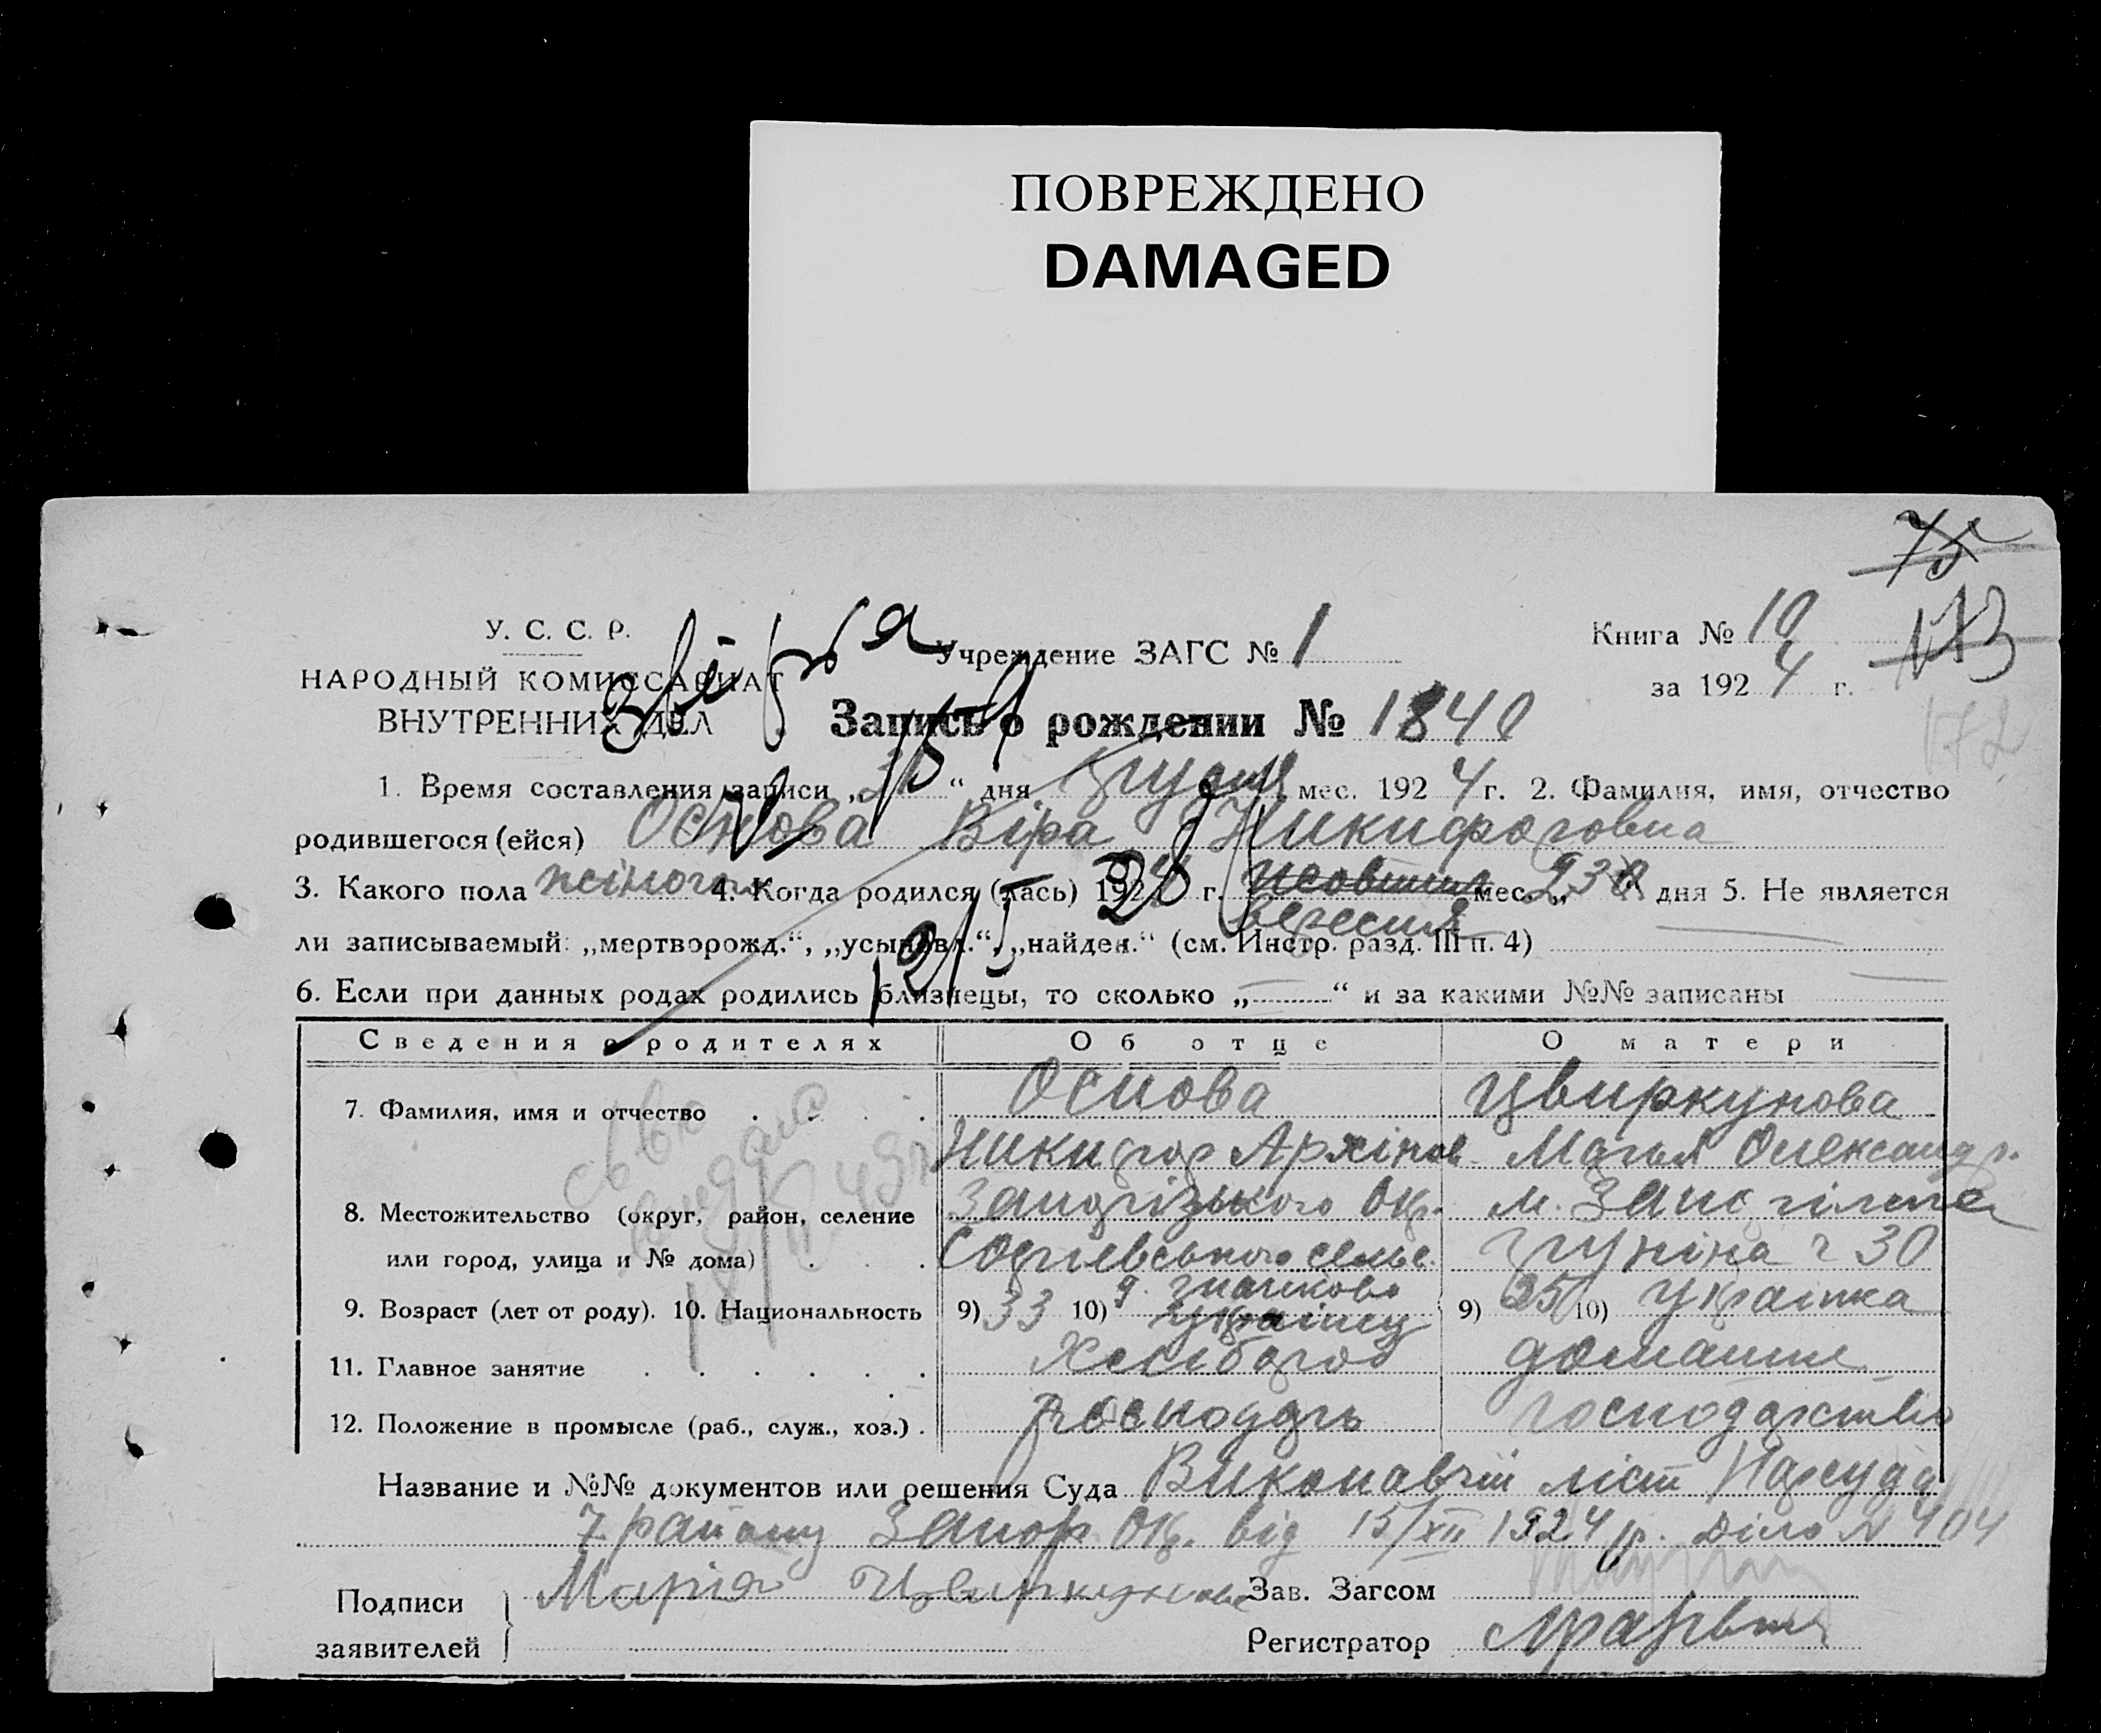 ПОВРЕЖДЕНО
DAMAGED
75
У. С. С. Р.
НАРОДНЫЙ КОМИССАРИАТ
ВНУТРЕННИХ ДЕЛ
Учреждение ЗАГС № 1
Книга № 10
за 1924 г.
173
172
Запись о рождении № 1840
1. Время составления записи „31“ дня грудня мес. 1924 г. 2. Фамилия, имя, отчество
родившегося (ейся) Основа Віра Никифоровна
3. Какого пола жіночого 4. Когда родился (лась) 1924 г. жовтня вересня мес. „ “ дня 5. Не является
ли записываемый: „мертворожд.“, „усыновл.“, „найден.“ (см. Инстр. разд. III п. 4)
6. Если при данных родах родились близнецы, то сколько „ — “ и за какими №№ записаны —
Сведения о родителях Об отце О матери
7. Фамилия, имя и отчество Основа Цвиркунова
Никифор Архіпов. Марія Олександр.
8. Местожительство (округ, район, селение Запорізького Окр. м. Запоріжжє
или город, улица и № дома) 30
9. Возраст (лет от роду). 10. Национальность 9) 33 10) Українец 9) 25 10) Українка
11. Главное занятие Хлібороб домашнє
12. Положение в промысле (раб., служ., хоз.) господарь господарство
Название и №№ документов или решения Суда Виконавчій ліст Нарсуда
7 району Запор. Окр. від 15/XII 1924 р. Діло № 404
Подписи заявителей Марія Цвиркунова
Зав. Загсом
Регистратор